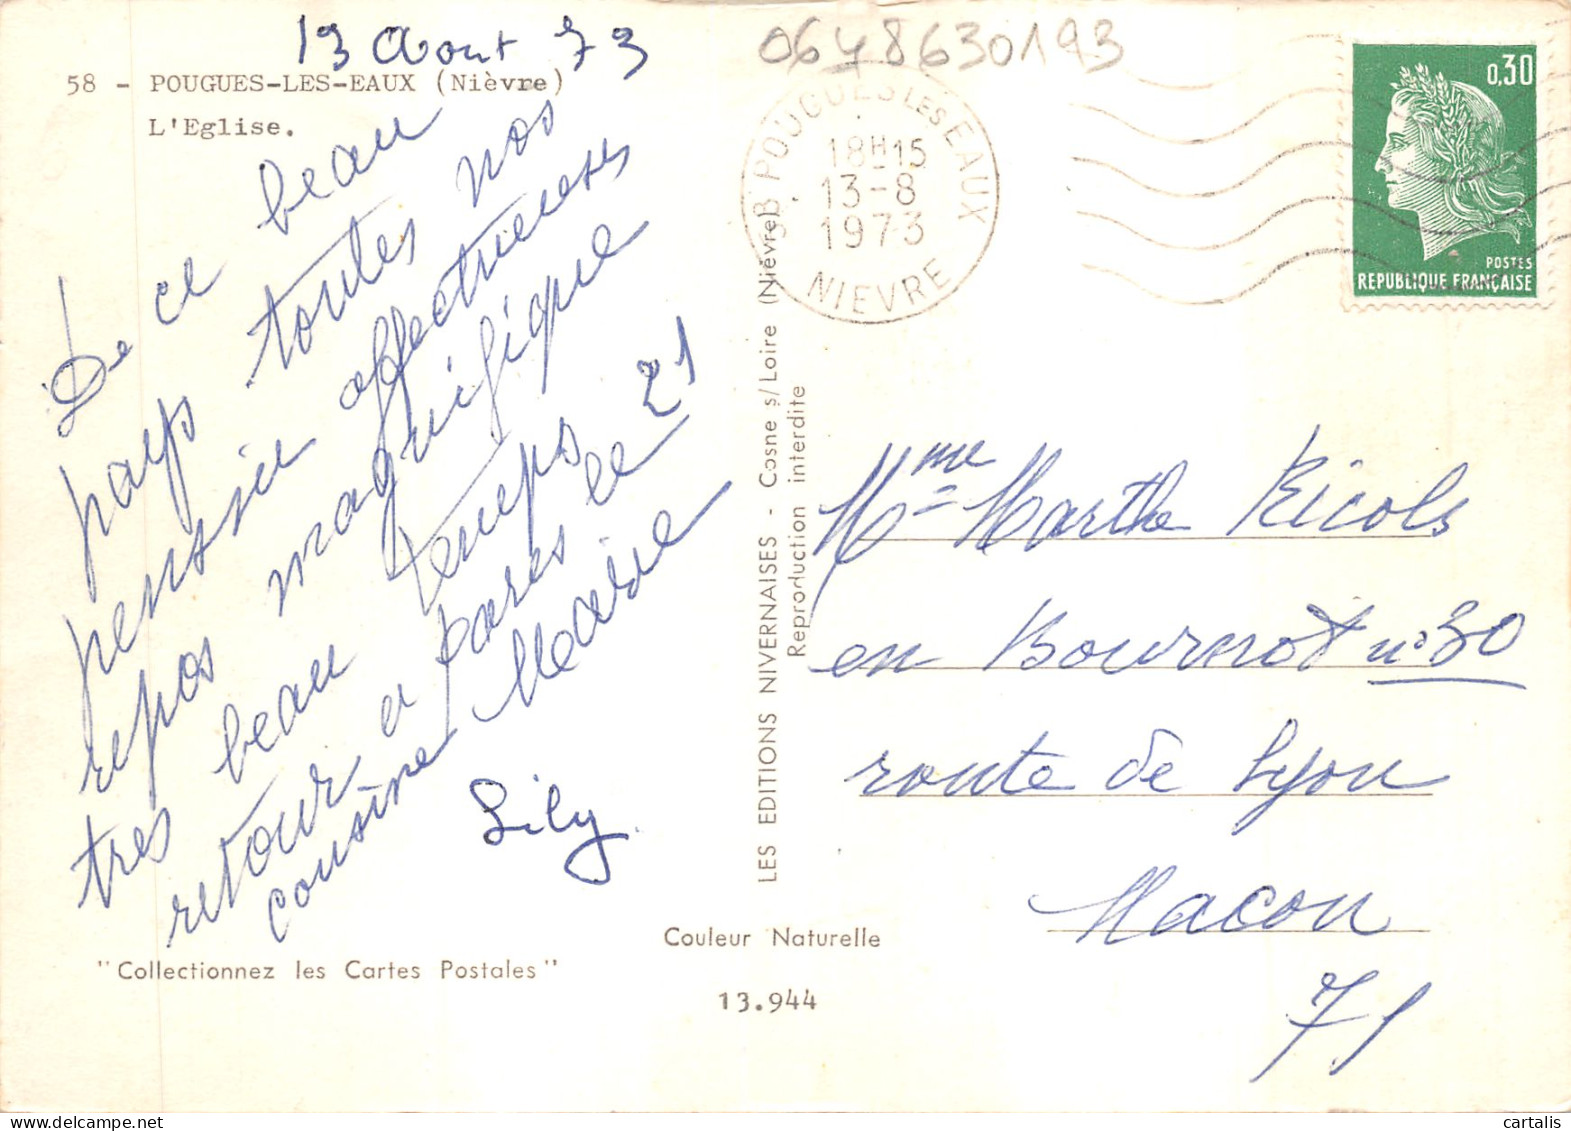 13 Aout 73
58 - POUGUES-LES-EAUX (Nièvre)
L'Eglise.
De ce beau
pays toutes nos
pensées affectueuses
repos magnifique
tres beau temps
retour a le 21
cousine
Lily
"Collectionnez les Cartes Postales"
Couleur Naturelle
13.944
LES EDITIONS NIVERNAISES - Cosne s/Loire (Nièvre)
Reproduction interdite
0648630193
58 POUGUES LES EAUX
18H15
13-8
1973
NIEVRE
0,30
POSTES
REPUBLIQUE FRANÇAISE
Mme Marthe Ricols
en Bournot n° 30
route de Lyon
Macon
71
cartalis